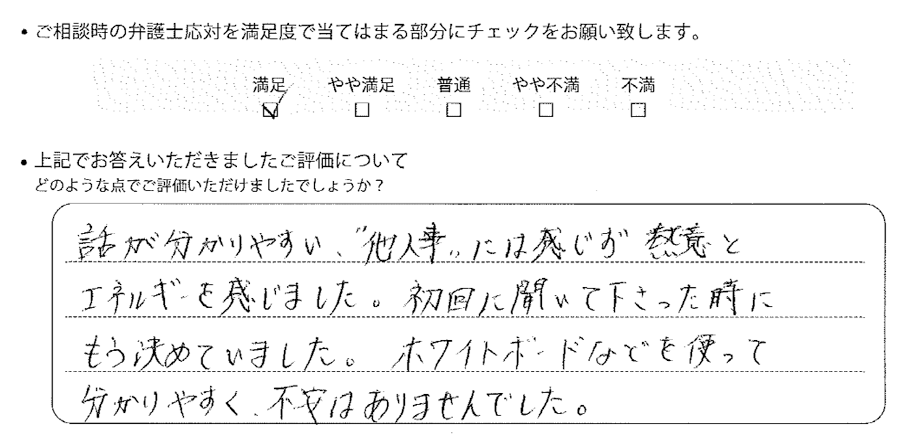 ・ご相談時の弁護士応対を満足度で当てはまる部分にチェックをお願い致します。
満足 やや満足 普通 やや不満 不満
☑ □ □ □ □
・上記でお答えいただきましたご評価について
どのような点でご評価いただけましたでしょうか？
話が分かりやすい、"他人事"には感じず 熱意と
エネルギーを感じました。初回に聞いて下さった時に
もう決めていました。 ホワイトボードなどを使って
分かりやすく、不安はありませんでした。